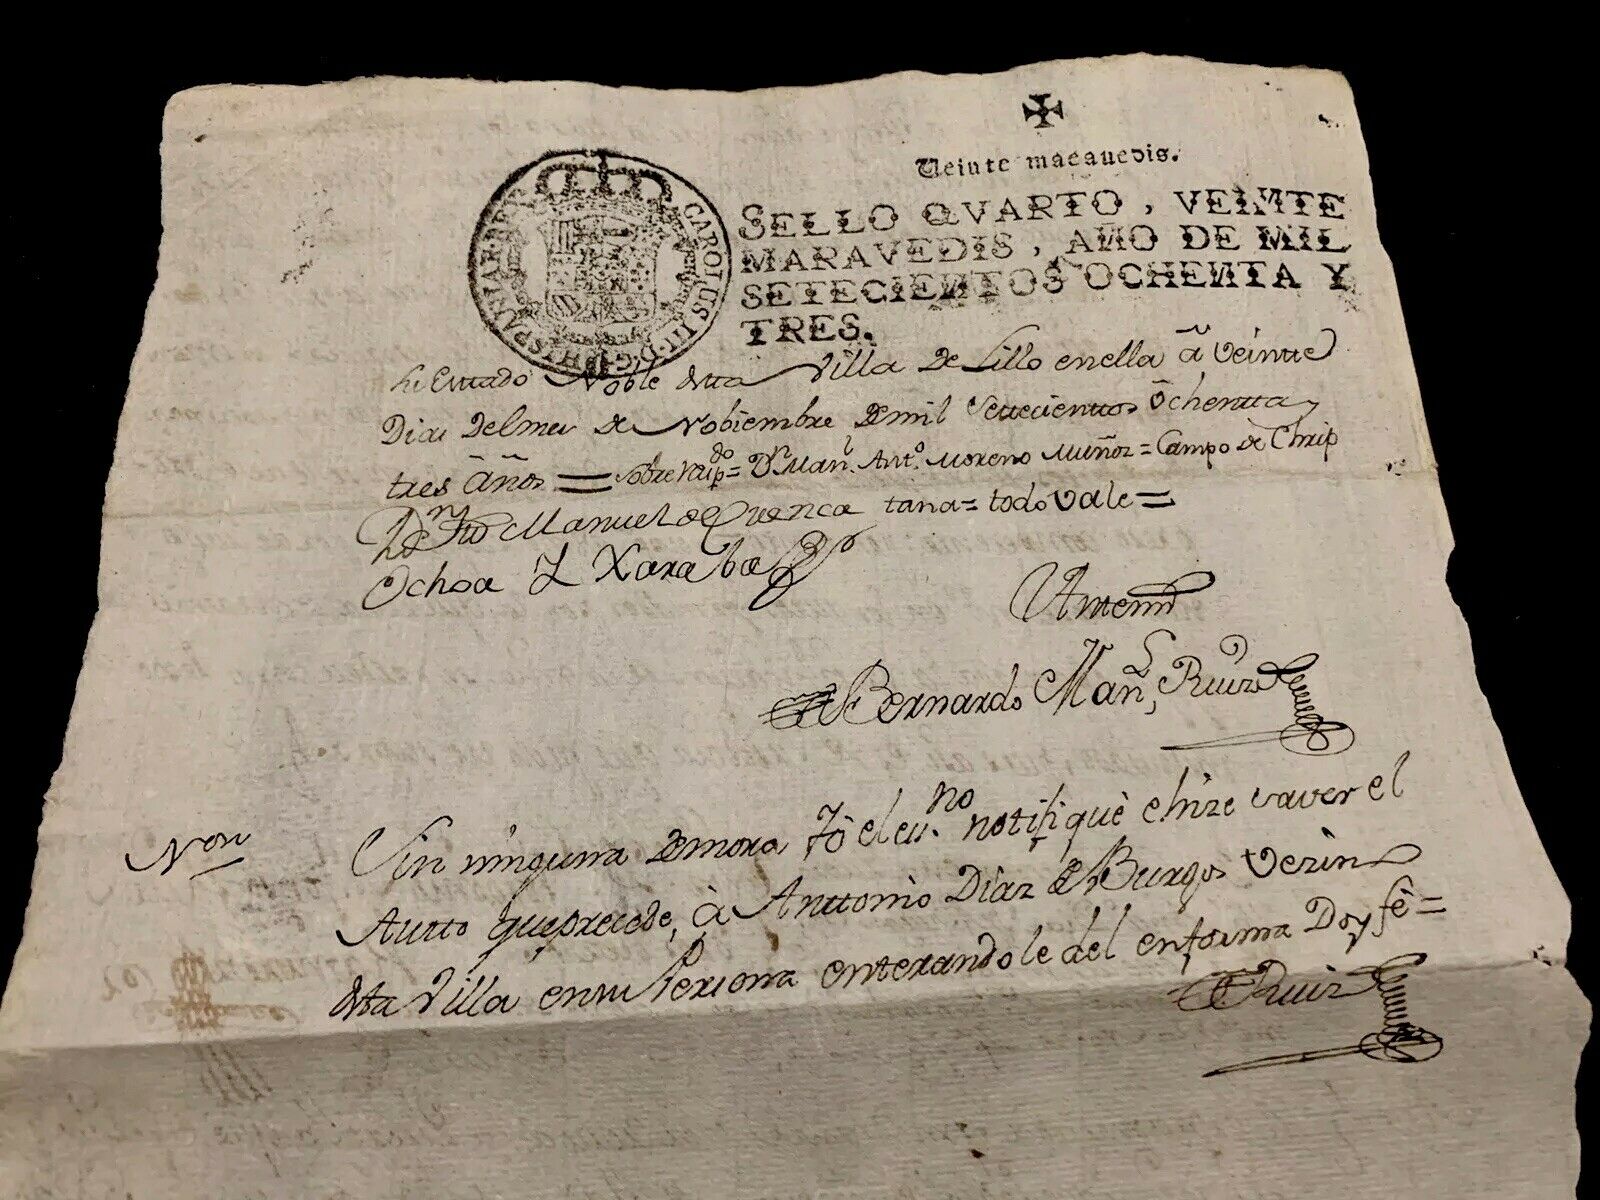 Veinte maravedis.
SELLO QVARTO, VEINTE
MARAVEDIS, AÑO DE MIL
SETECIENTOS OCHENTA Y
TRES.
CAROLUS III D G HISPANIAR REX
Estado Noble dsta Villa de Lillo enella â Veintte
Dias Delmes de Nobiembre de mil Settecienttos ôchentta y
tres âños = sobre Rasp.do = Dn. Manl. Antº. Moreno Muñoz = Campo de Chrip
tana = todo Vale =
Manuel de Cuenca
Ochoa Y Xaraba
Antemi
Bernardo Manl. Ruiz
Non
Sin ninguna Demora Yo el es.no notifiquè e hize saver el
Autto que precede, à Anttonio Diaz de Burgos Vezin
dsta Villa en su Persona enterandole del en forma Doy fè =
Ruiz